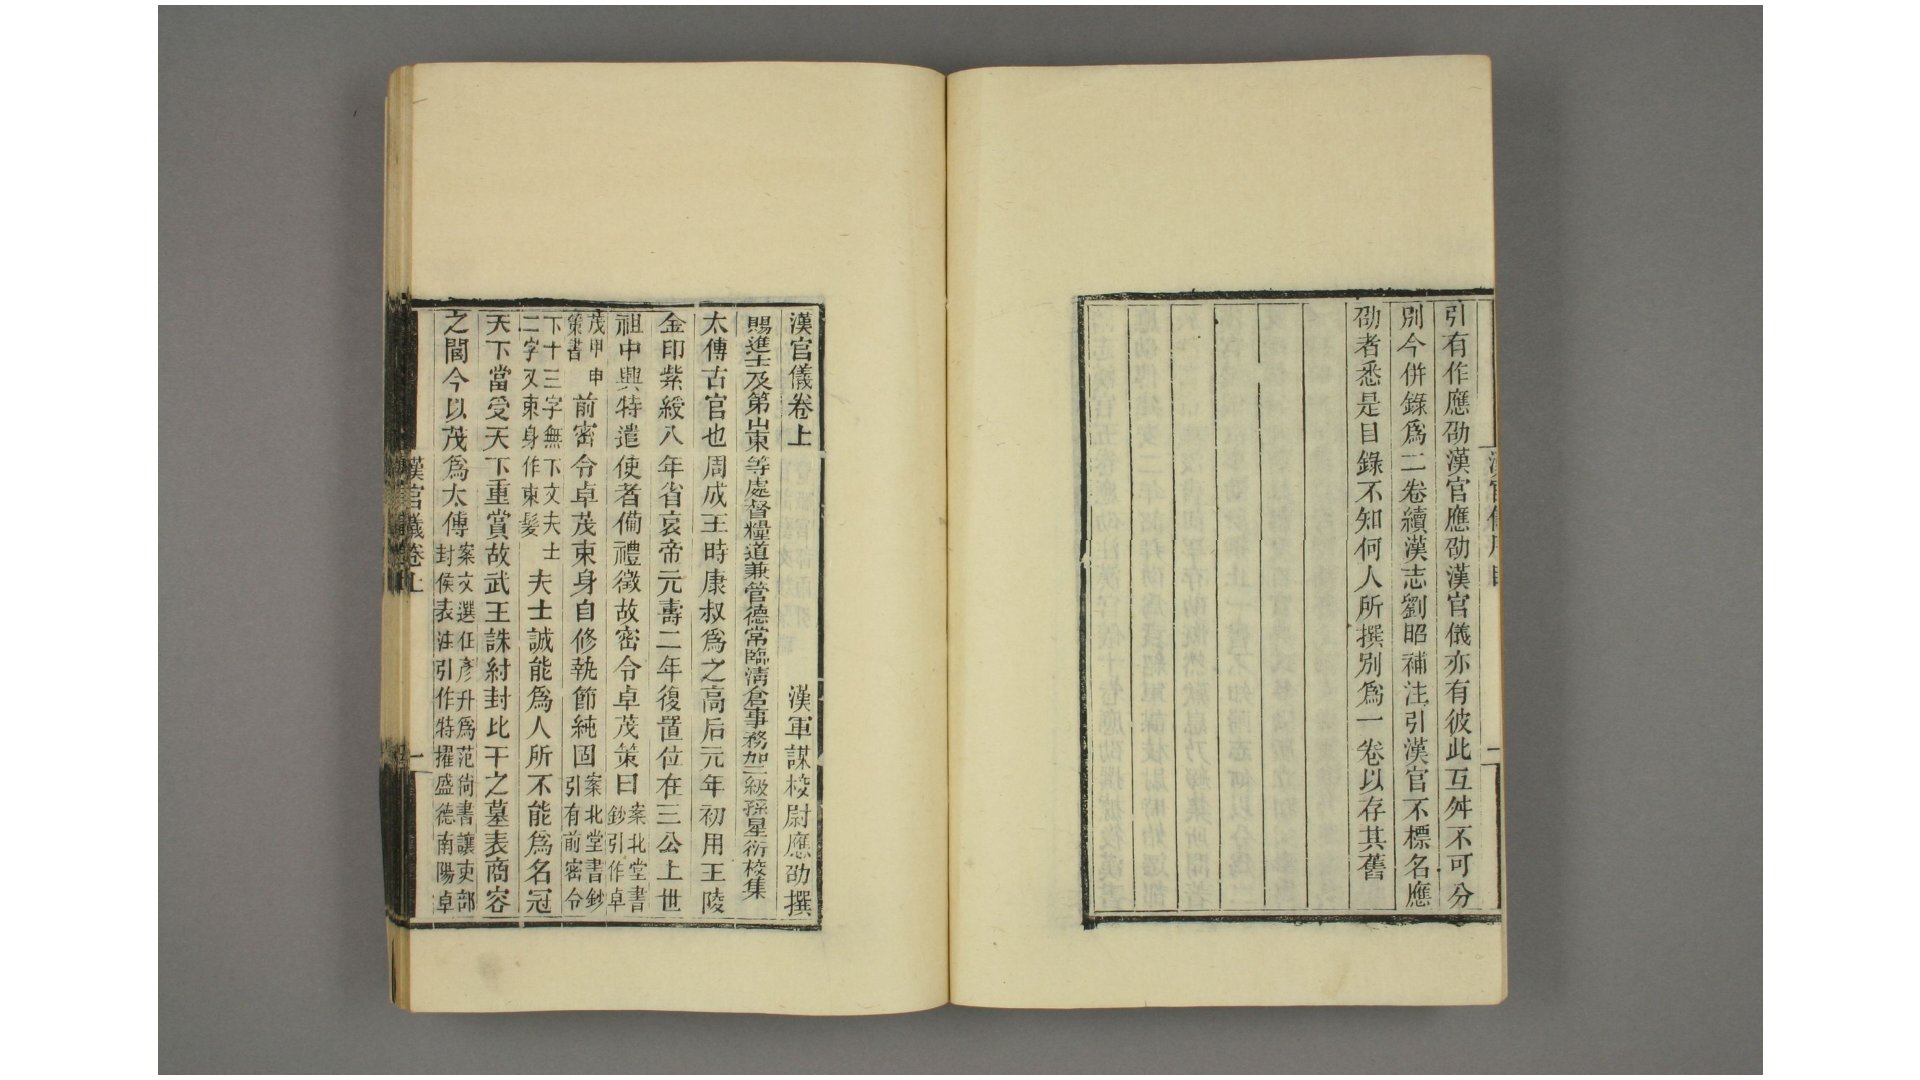 引有作應劭漢官應劭漢官儀亦有彼此互舛不可分
別今併錄爲二卷續漢志劉昭補注引漢官不標名應
劭者悉是目錄不知何人所撰別爲一卷以存其舊
漢官儀卷上 漢軍謀校尉應劭撰
賜進士及第山東等處督糧道兼管德常臨淸倉事務加三級孫星衍校集
太傅古官也周成王時康叔爲之高后元年初用王陵
金印紫綬八年省哀帝元壽二年復置位在三公上世
祖中興特遣使者備禮徵故密令卓茂策曰案北堂書鈔引作卓
茂甲申策書前密令卓茂束身自修執節純固案北堂書鈔引有前密令
下十三字無下文夫士二字又束身作束髮夫士誠能爲人所不能爲名冠
天下當受天下重賞故武王誅紂封比干之墓表商容
之閭今以茂爲太傅案文選任彥升爲范尙書讓吏部封侯表注引作特擢盛德南陽卓
漢官儀卷上 一